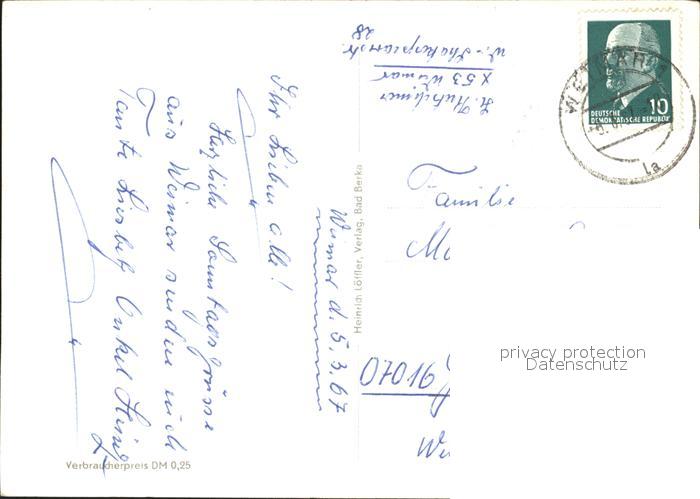 Weimar d. 5.3.67
Ihr Lieben alle!
Herzliche Sonntagsgrüsse
aus Weimar senden euch
Tante Liesbeth Onkel Heinz
Verbraucherpreis DM 0,25
Heinrich Löffler, Verlag, Bad Berka
X 53 Weimar
W.-Shakespearestr.
28
DEUTSCHE
DEMOKRATISCHE REPUBLIK
10
1a
Familie
07016
privacy protection
Datenschutz